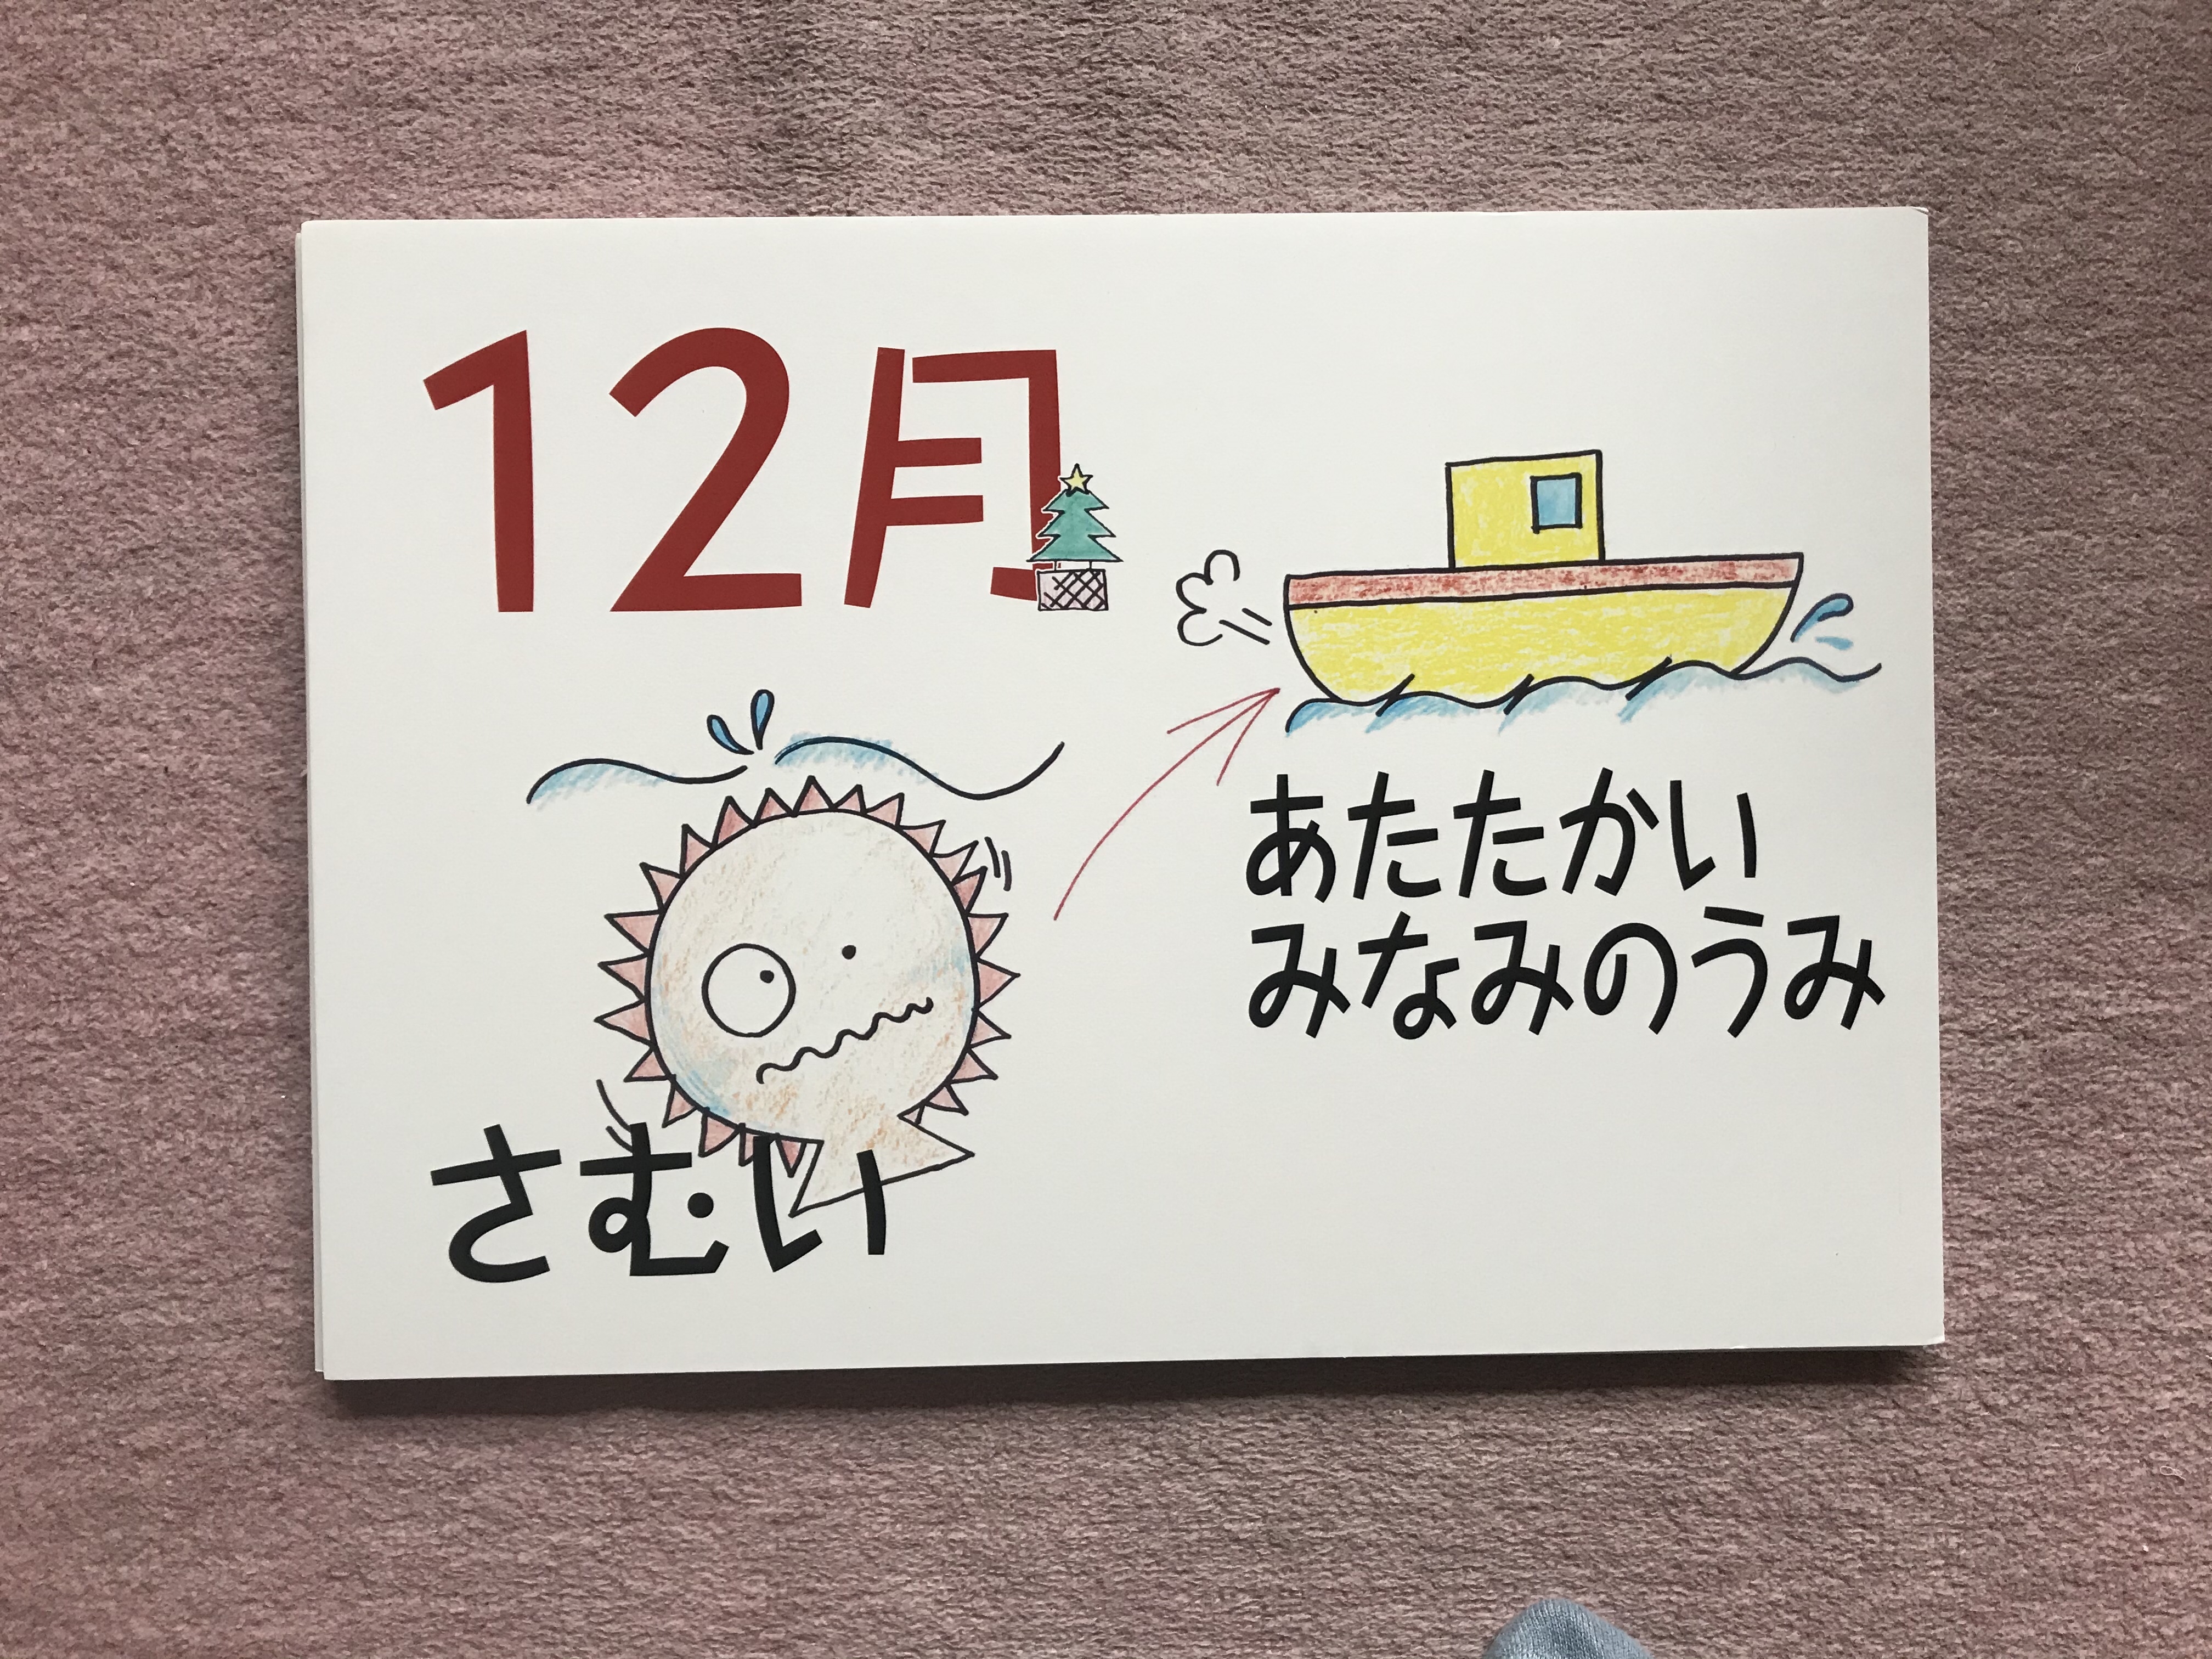 12月
さむい
あたたかい
みなみのうみ